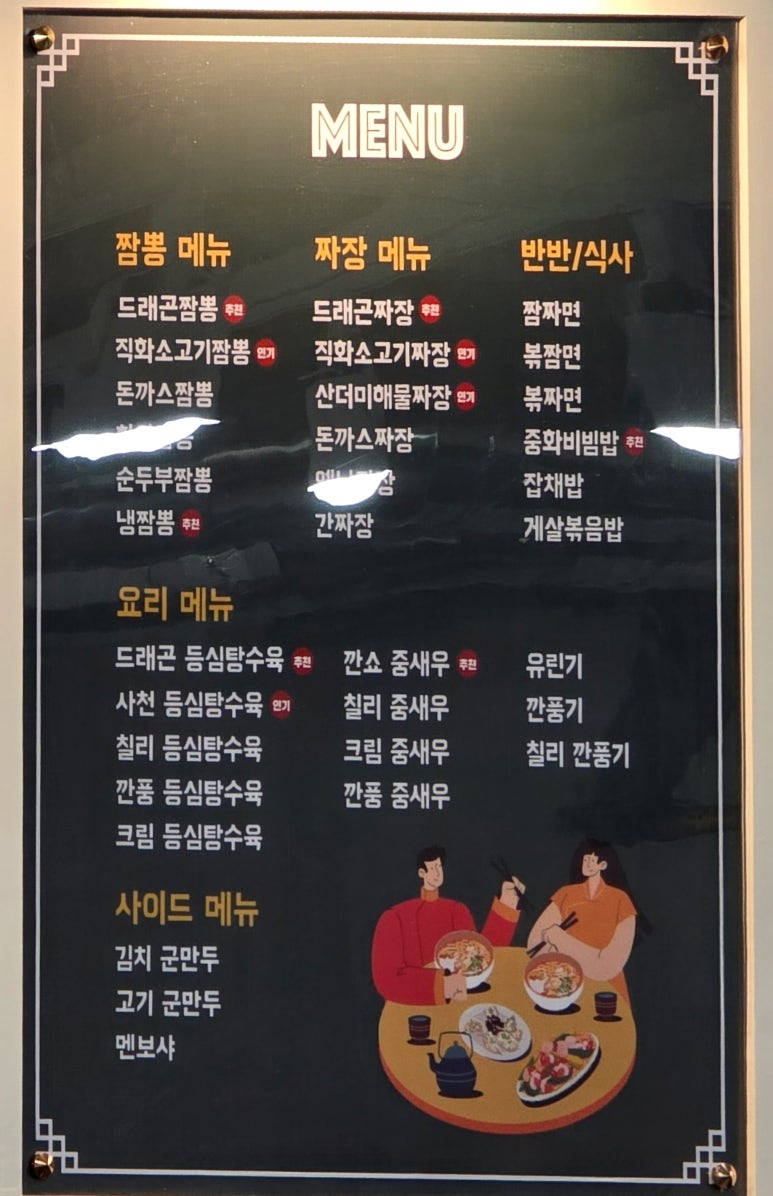 MENU
짬뽕 메뉴
드래곤짬뽕 추천
직화소고기짬뽕 인기
돈까스짬뽕
순두부짬뽕
냉짬뽕 추천
짜장 메뉴
드래곤짜장 추천
직화소고기짜장 인기
산더미해물짜장 인기
돈까스짜장
간짜장
반반/식사
짬짜면
볶짬면
볶짜면
중화비빔밥 추천
잡채밥
게살볶음밥
요리 메뉴
드래곤 등심탕수육 추천
사천 등심탕수육 인기
칠리 등심탕수육
깐풍 등심탕수육
크림 등심탕수육
깐쇼 중새우 추천
칠리 중새우
크림 중새우
깐풍 중새우
유린기
깐풍기
칠리 깐풍기
사이드 메뉴
김치 군만두
고기 군만두
멘보샤